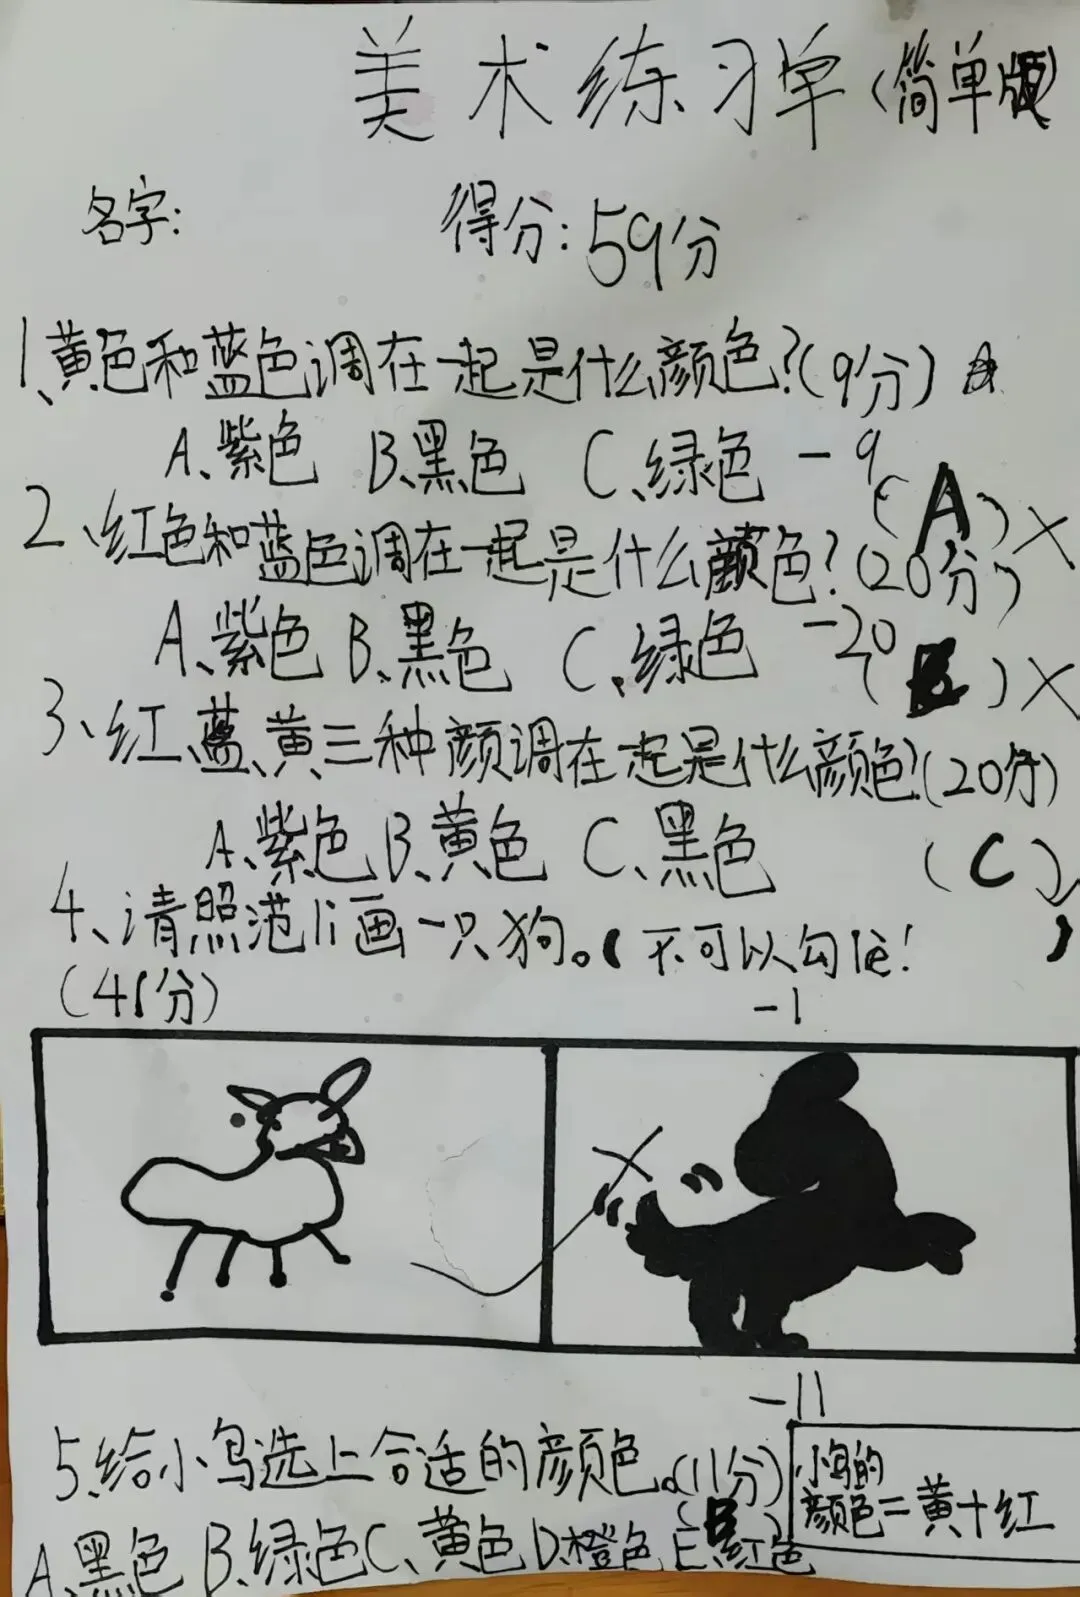 美术练习单(简单版)
名字: 得分:59分
1、黄色和蓝色调在一起是什么颜色?(9分)
A、紫色 B、黑色 C、绿色 -9
(A)×
2、红色和蓝色调在一起是什么颜色?(20分)
A、紫色 B、黑色 C、绿色 -20
(B)×
3、红、蓝、黄三种颜调在一起是什么颜色?(20分)
A、紫色 B、黄色 C、黑色 (C)
4、请照范li画一只狗。(不可以勾1它!)
(41分) -1
-11
5、给小鸟选上合适的颜色。(11分)
(B)
A、黑色 B、绿色 C、黄色 D、橙色 E、红色
小鸟的
颜色=黄+红